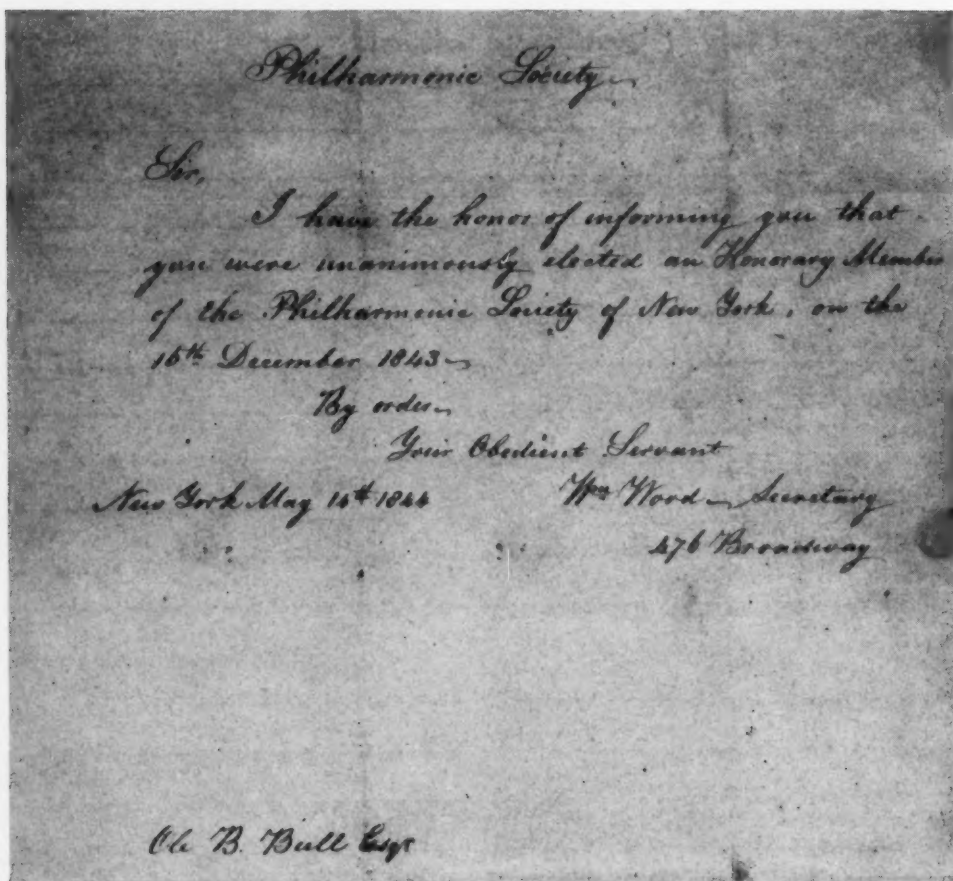 Philharmonic Society
Sir,
I have the honor of informing you that
you were unanimously elected an Honorary Member
of the Philharmonic Society of New York, on the
15th December 1843
By order
Your Obedient Servant
New York May 14th 1844 Wm Wood Secretary
476 Broadway
Ole B. Bull Esqr